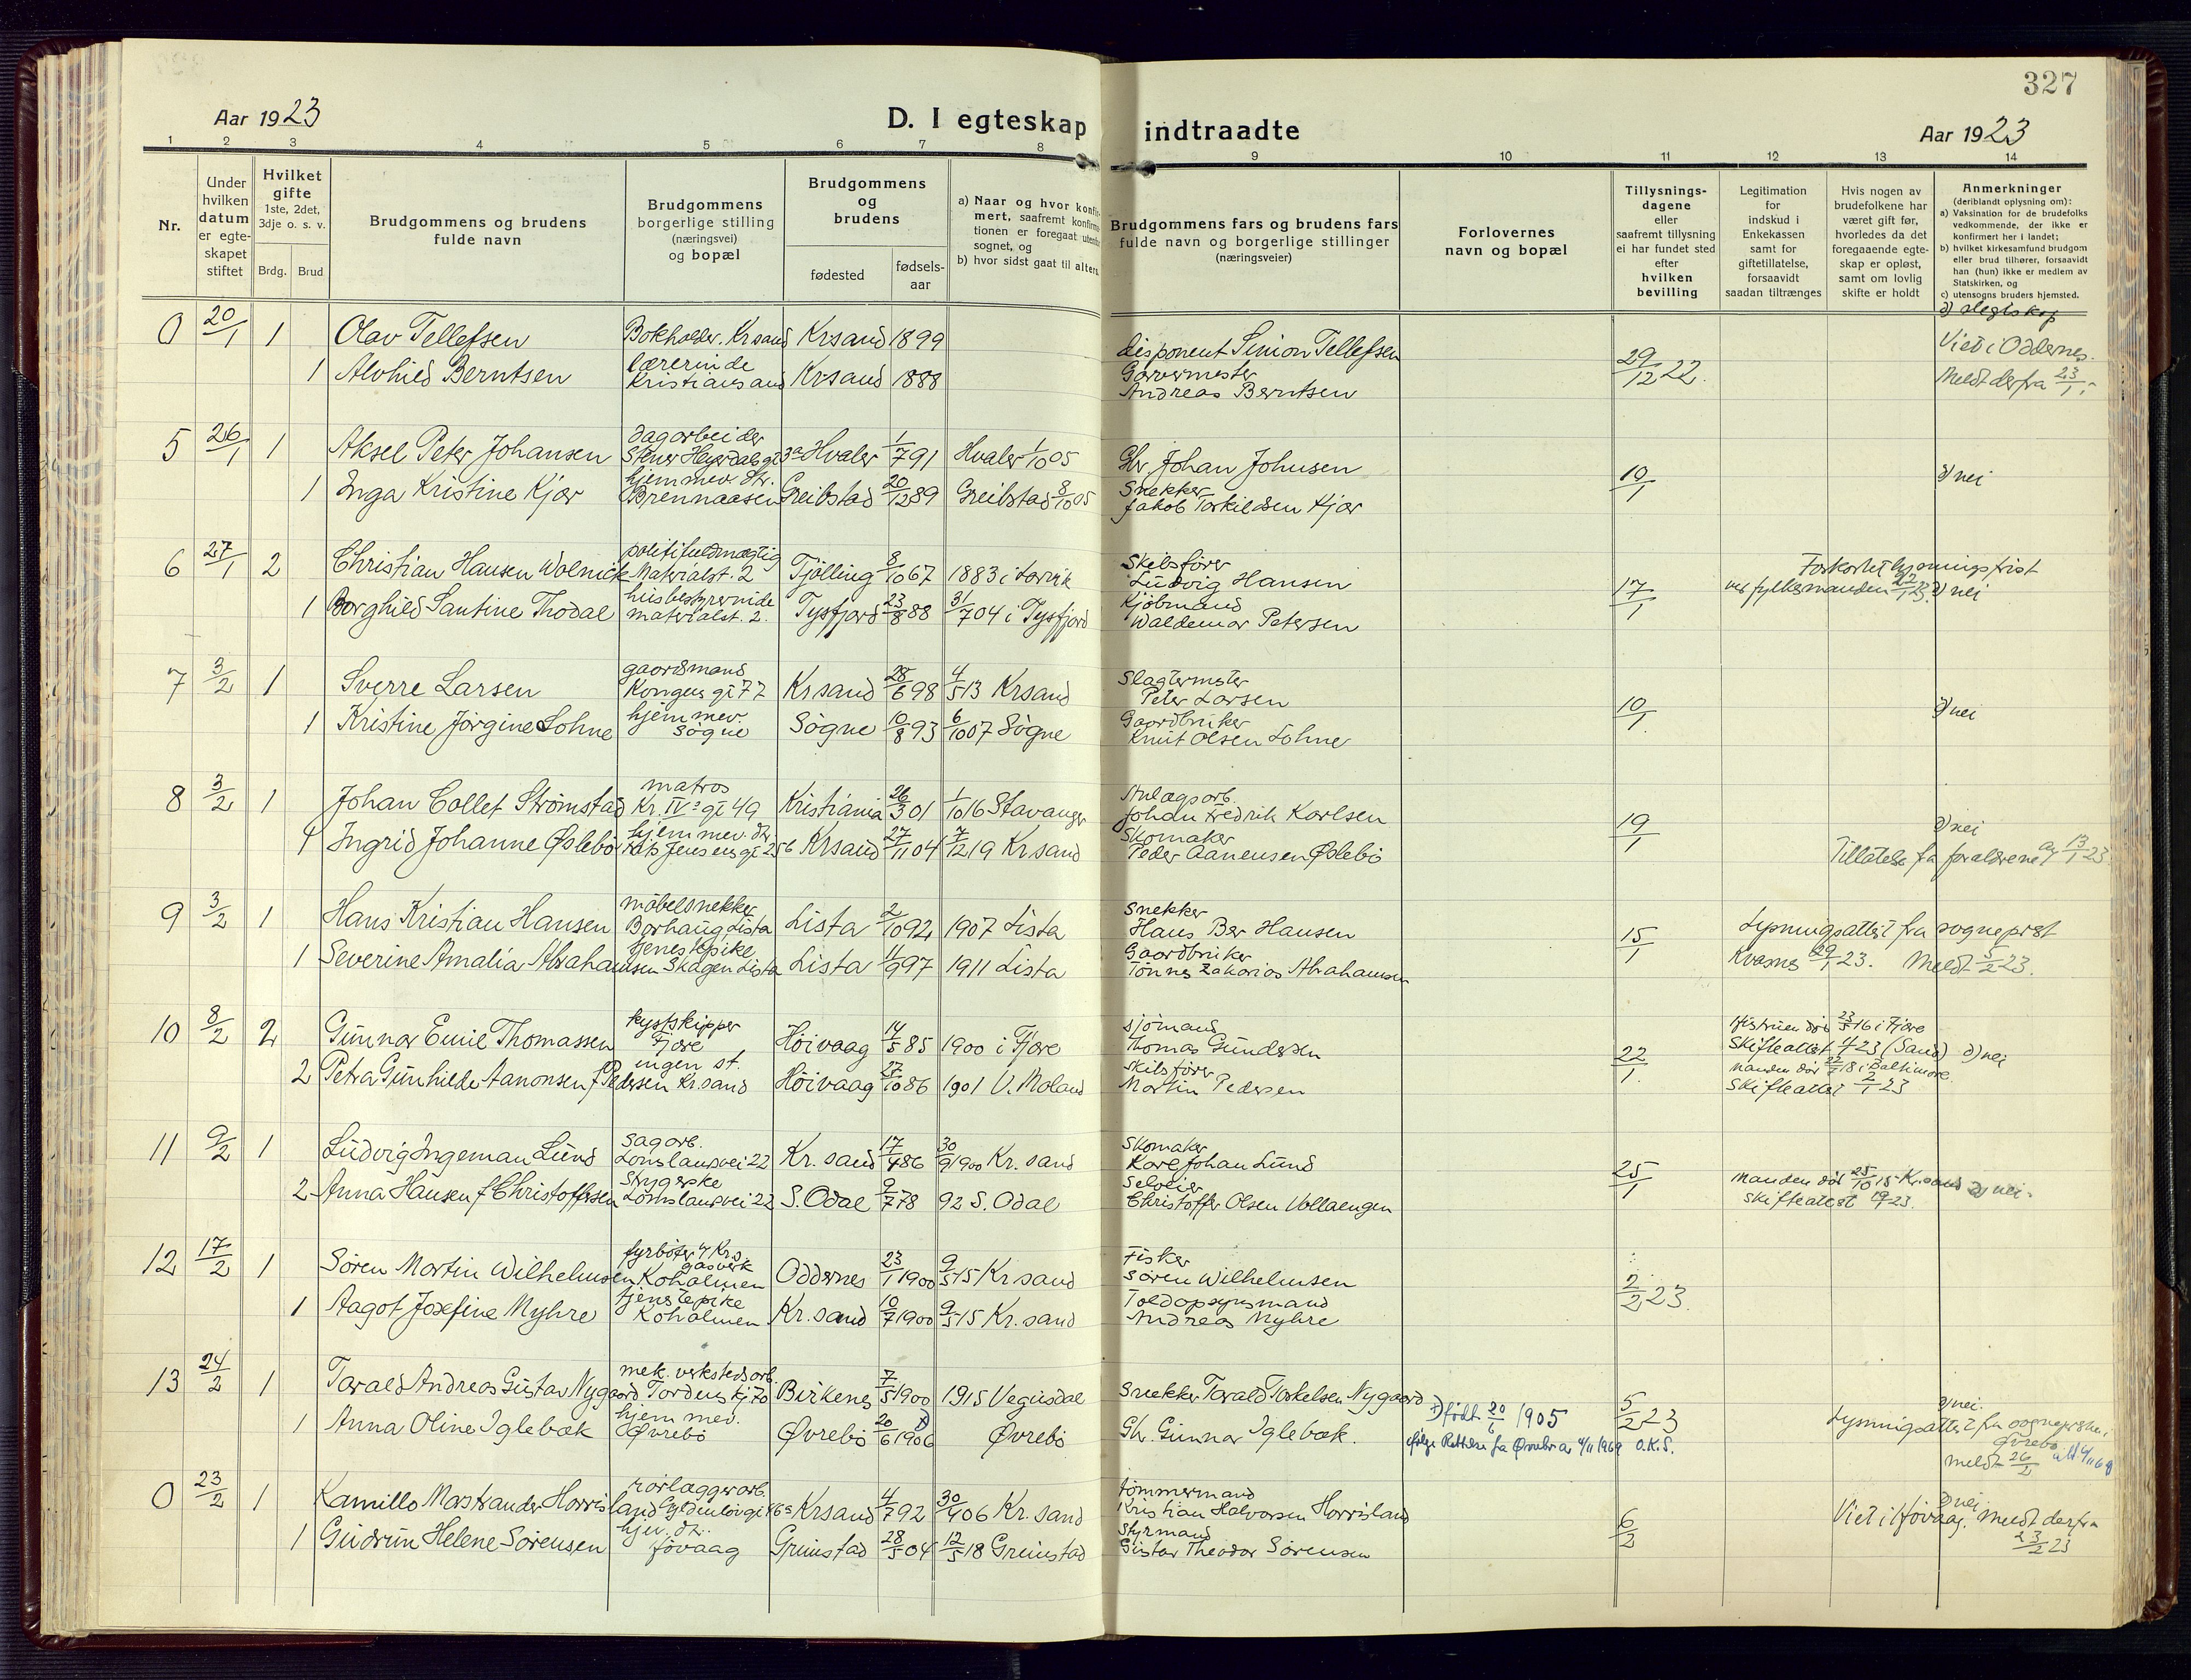 327
Aar 1923
D. I egteskap indtraadte
Aar 1923
1 2 3 4 5 6 7 8 9 10 11 12 13 14
Nr.
Under hvilken datum er egte-skapet stiftet
Hvilket gifte
1ste, 2det, 3dje o. s. v.
Brdg. Brud
Brudgommens og brudens
fulde navn
Brudgommens
borgerlige stilling
(næringsvei)
og bopæl
Brudgommens
og
brudens
fødested
fødsels-
aar
a) Naar og hvor konfir-
mert, saafremt konfirma-
tionen er foregaat utenfor
sognet, og
b) hvor sidst gaat til alters.
Brudgommens fars og brudens fars
fulde navn og borgerlige stillinger
(næringsveier)
Forlovernes
navn og bopæl
Tillysnings-
dagene
eller
saafremt tillysning
ei har fundet sted
efter
hvilken
bevilling
Legitimation
for
indskud i
Enkekassen
samt for
giftetillatelse,
forsaavidt
saadan tiltrænges
Hvis nogen av
brudefolkene har
været gift før,
hvorledes da det
foregaaende egte-
skap er opløst,
samt om lovlig
skifte er holdt
Anmerkninger
(deriblandt oplysning om):
a) Vaksination for de brudefolks
vedkommende, der ikke er
konfirmert her i landet;
b) hvilket kirkesamfund brudgom
eller brud tilhører, forsaavidt
han (hun) ikke er medlem av
Statskirken, og
c) utensogns bruders hjemsted.
d) slegtskap
0 20/1 1 Olav Tellefsen Bokholder. Krsand Krsand 1899 disponent Simon Tellefsen 29/12 22. Viet i Oddernes.
1 Alvhild Berntsen lærerinde Kristiansand Krsand 1888 Garvermester Andreas Berntsen Meldt derfra 23/1
5 26/1 1 Aksel Peter Johansen dagarbeider Hvaler 1/7 91 Hvaler 1/10 05 Johan Johnsen 10/1 d) nei
1 Inga Kristine Kjær hjemmev. Str. Brennaasen Greibstad 20/12 89 Greibstad 8/10 05 Snekker Jakob Torkildsen Kjær
6 27/1 2 Christian Hansen Wolnick politifuldmægtig Materialst. 2 Tjølling 8/10 67 1883 i Larvik Skibsfører Ludvig Hansen 17/1 Forkortet lysningsfrist
ved fylkesmanden 22/1 23. d) nei
1 Borghild Santine Thodal husbestyrerinde materialst. 2. Tysfjord 23/8 88 31/7 04 i Tysfjord Kjøbmand Waldemar Petersen
7 3/2 1 Sverre Larsen gaardsmand Kongens gt 77 Krsand 28/6 98 4/5 13 Krsand Slagtermster Peter Larsen 10/1 d) nei
1 Kristine Jørgine Lohne hjemmev. Søgne Søgne 10/8 93 6/10 07 Søgne Gaardbruker Knut Olsen Lohne
8 3/2 1 Johan Collet Strømstad matros Kr. IVs gt 49 Kristiania 26/3 01 1/10 16 Stavanger Anlægsarb. Johan Fredrik Karlsen 19/1 d) nei
1 Ingrid Johanne Øslebø hjemmev. dtr. Jensens gt 25b Krsand 27/11 04 7/12 19 Krsand Skomaker Peder Aanensen Øslebø Tillatelse fra forældrene av 13/1 23
9 3/2 1 Hans Kristian Hansen møbelsnekker Borhaug Lista Lista 2/10 92 1907 Lista Snekker Hans Ber Hansen 15/1 Lysningsattest fra sogneprest
1 Severine Amalia Abrahamsen tjenestepike Skagen Lista Lista 11/9 97 1911 Lista Gaardbruker Tønnes Zakarias Abrahamsen Kvasnes 29/1 23. Meldt 5/2 23.
10 8/2 2 Gunnar Emil Thomassen kystskipper Fjære Høivaag 14/5 85 1900 i Fjære sjømand Thomas Gundersen 22/1. Hustruen død 23/5 16 i Fjære
Skifteattest 4/1 23 (Sand) d) nei
2 Petra Gunhilde Aanonsen f. Pedersen ingen st. Kr.sand Høivaag 27/10 86 1901 V. Moland Skibsfører Martin Pedersen Manden død 18 i Baltimore.
Skifteattest 2/1 23
11 9/2 1 Ludvig Ingeman Lund Sagarb. Lømslandsvei 22 Kr. sand 17/4 86 30/9 1900 Kr. sand Skomaker Kare Johan Lund 25/1 Manden død 25/10 15 Kr.sand d) nei.
2 Anna Hansen f Christoffersen Strygerske Lømslandsvei 22 S. Odal 9/7 78 92 S. Odal Selveier Christoffer Olsen Vollaengen Skifteattest 19/1 23.
12 17/2 1 Søren Martin Wilhelmsen fyrbøter v Krs. gasverk Koholmen Oddernes 23/1 1900 9/5 15 Kr sand Fisker Søren Wilhelmsen 2/2 23.
1 Aagot Josefine Myhre tjenestepike Koholmen Kr. sand 10/7 1900 9/5 15 Kr. sand Toldopsynsmand Andreas Myhre
13 24/2 1 Tarald Andreas Gustav Nygaard mek. verkstedsarb. Tordenskj 70 Birkenes 7/5 1900 1915 Vegusdal Snekker Tarald Torkelsen Nygaard 5/2 23 d) nei.
1 Anna Oline Iglebæk hjemmev. Øvrebø Øvrebø 20/6 1906 x) Øvrebø Gbr. Gunnar Iglebæk. x) født 20/6 1905
ifølge Rettelse fra Øvrebø av 4/11 1969 O.K.S.
Lysningsattest fra sogneprsten i
Øvrebø
meldt 26/2
0 23/2 1 Kamillo Mostrander Horrisland rørlæggerarb. Gyldenløvs gt 46a Krsand 4/7 92 30/9 06 Kr. sand tømmermand Kristian Halvorsen Horrisland 6/2 d) nei.
Viet i Høivaag. Meldt derfra
23/2 23
1 Gudrun Helene Sørensen Grimstad 28/5 04 12/5 18 Grimstad Styrmand Gustav Theodor Sørensen